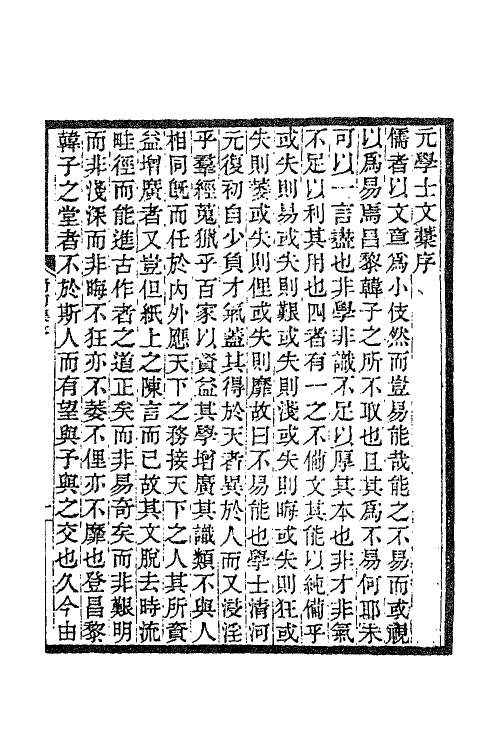 元學士文藁序
儒者以文章爲小伎然而豈易能哉能之不易而或視
以爲易焉昌黎韓子之所不取也且其爲不易何耶未
可以一言盡也非學非識不足以厚其本也非才非氣
不足以利其用也四者有一之不備文其能以純備乎
或失則易或失則艱或失則淺或失則晦或失則狂或
失則萎或失則俚或失則靡故曰不易能也學士清河
元復初自少負才氣蓋其得於天者異於人而又浸淫
乎羣經蒐獵乎百家以資益其學增廣其識類不與人
相同旣而任於內外應天下之務接天下之人其所資
益增廣者又豈但紙上之陳言而已故其文脫去時流
畦徑而能進古作者之道正矣而非易奇矣而非艱明
而非淺深而非晦不狂亦不萎不俚亦不靡也登昌黎
韓子之堂者不於斯人而有望與予與之交也久今由